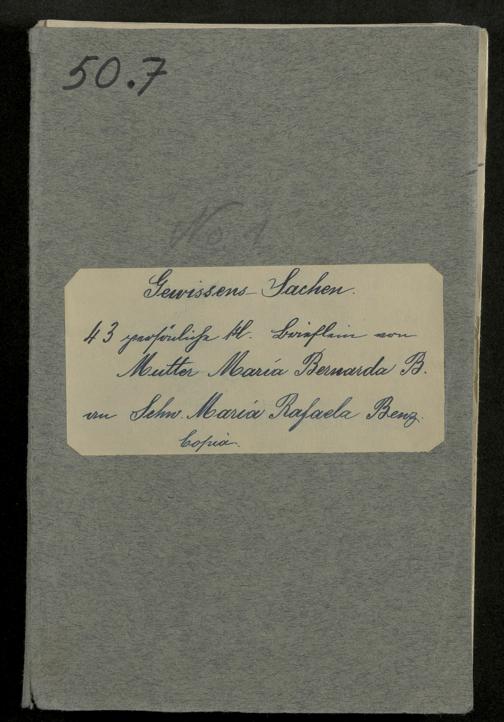 50.7
No. 1
Gewissens-Sachen.
43 persönliche kl. Brieflein von
Mutter María Bernarda B.
an Schw. María Rafaela Benz.
Copia.